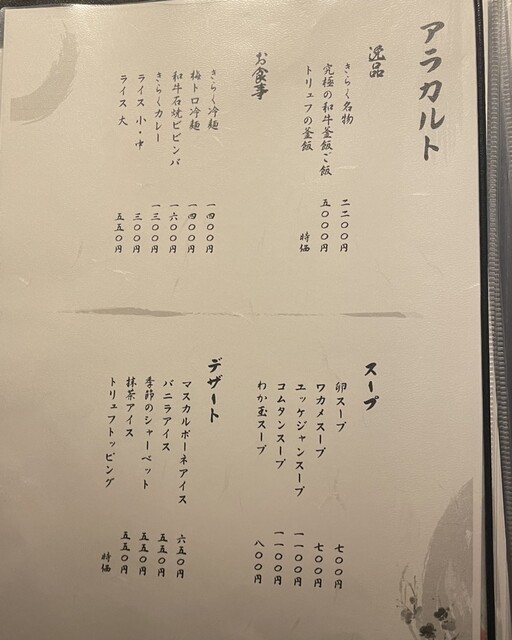 アラカルト
逸品
きらく名物 二二〇〇円
究極の和牛釜飯ご飯 五〇〇〇円
トリュフの釜飯 特価
お食事
きらく冷麺 一四〇〇円
梅トロ冷麺 一四〇〇円
和牛石焼ビビンバ 一六〇〇円
きらくカレー 一三〇〇円
ライス 小・中 三〇〇円
ライス 大 五五〇円
スープ
卵スープ 七〇〇円
ワカメスープ 七〇〇円
エッケジャンスープ 一一〇〇円
コムタンスープ 一一〇〇円
わか玉スープ 八〇〇円
デザート
マスカルポーネアイス 六五〇円
バニラアイス 五五〇円
季節のシャーベット 五五〇円
抹茶アイス 五五〇円
トリュフトッピング 特価